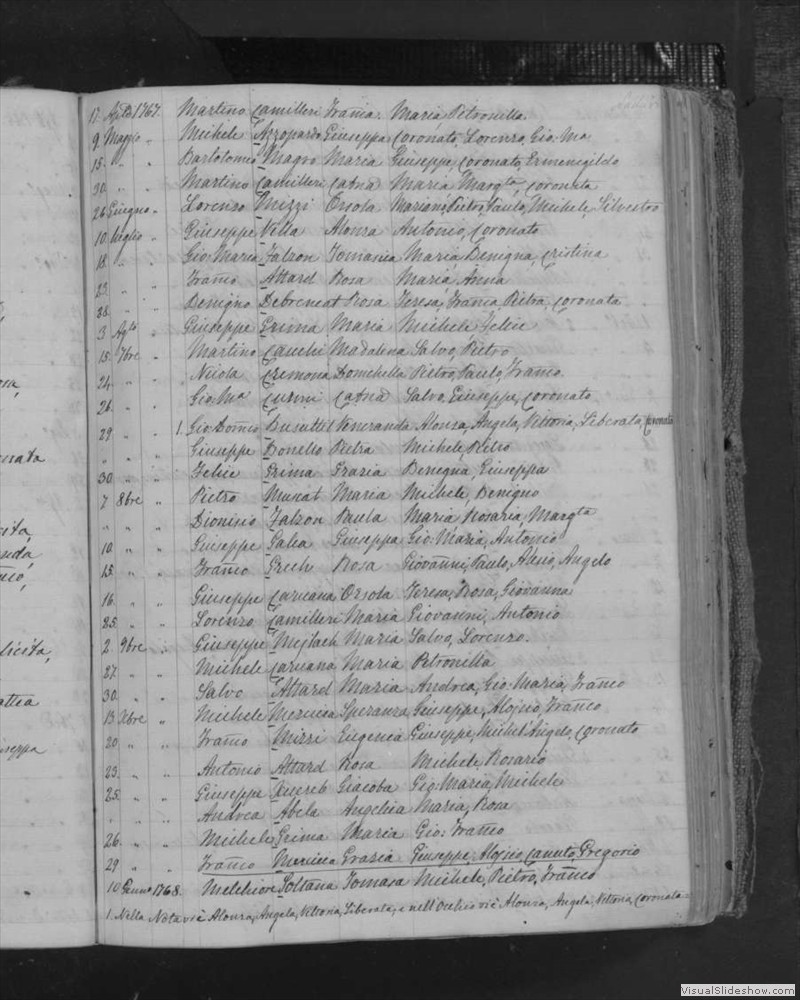 17 Aple 1767. Martino Camilleri Franca Maria Petronilla
9 Maggio " Michele Azzopardo Giuseppa Coronato, Lorenzo, Gio: Ma
15 " " Bartolomeo Magro Maria Giuseppe Coronato Ermenegildo
30 " " Martino Camilleri Catna Maria Margta, Coronata
26 Giugno " Lorenzo Mizzi Orsola Mariano, Pietro, Paulo, Michele, Silvestro
10 luglio " Giuseppe Vella Alonza Antonio, Coronato
18 " " Gio: Maria Falzon Tomasica Maria Benigna, Cristina
23 " " Franco Attard Rosa Maria Anna
28 " " Benigno Debrencat Rosa Teresa, Franca Pietra, Coronata
3 Agto " Giuseppe Grima Maria Michele Felice
15 7bre " Martino Cauchi Madalena Salvo, Pietro
24 " " Nicola Cremona Domchella Pietro, Paulo, Franco
26 " " Gio: Ma Curmi Catna Salvo, Giuseppe, Coronato
29 " " 1. Gio Domco Busuttil Veneranda Alonza, Angela, Vittoria, Liberata, Coronata
" " " Giuseppe Bonello Pietra Michele Pietro
30 " " Felice Grima Grazia Benegna, Giuseppa
7 8bre " Pietro Muscat Maria Michele, Benigno
" " " Dionisio Falzon Paula Maria Rosaria, Margta
10 " " Giuseppe Galea Giuseppa Gio: Maria, Antonio
15 " " Franco Grech Rosa Giovanni, Paulo, Alesio, Angelo
16 " " Giuseppe Caruana Orsola Teresa, Rosa, Giovanna
25 " " Lorenzo Camilleri Maria Giovanni, Antonio
2 9bre " Giuseppe Mejlach Maria Salvo, Lorenzo.
27 " " Michele Caruana Maria Petronilla
30 " " Salvo Attard Maria Andrea, Gio: Maria, Franco
13 Xbre " Michele Mercieca Speranza Giuseppe, Alojsio, Franco
20 " " Franco Mizzi Eugenia Giuseppe, Michel'Angelo, Coronato
23 " " Antonio Attard Rosa Michele Rosario
25 " " Giuseppe Xuereb Giacoba Gio: Maria, Michele
" " " Andrea Abela Angelica Maria, Rosa
26 " " Michele Grima Maria Gio: Franco
29 " " Franco Mercieca Grazia Giuseppe, Alojsio, Canuto, Gregorio
10 Genno 1768. Melchiore Soltana Tomasa Michele, Pietro, Franco
1. Nella Nota vi è Alonza, Angela, Vittoria, Liberata, e nell'Occhio vi è Alonza, Angela, Vittoria, Coronata
VisualSlideshow.com